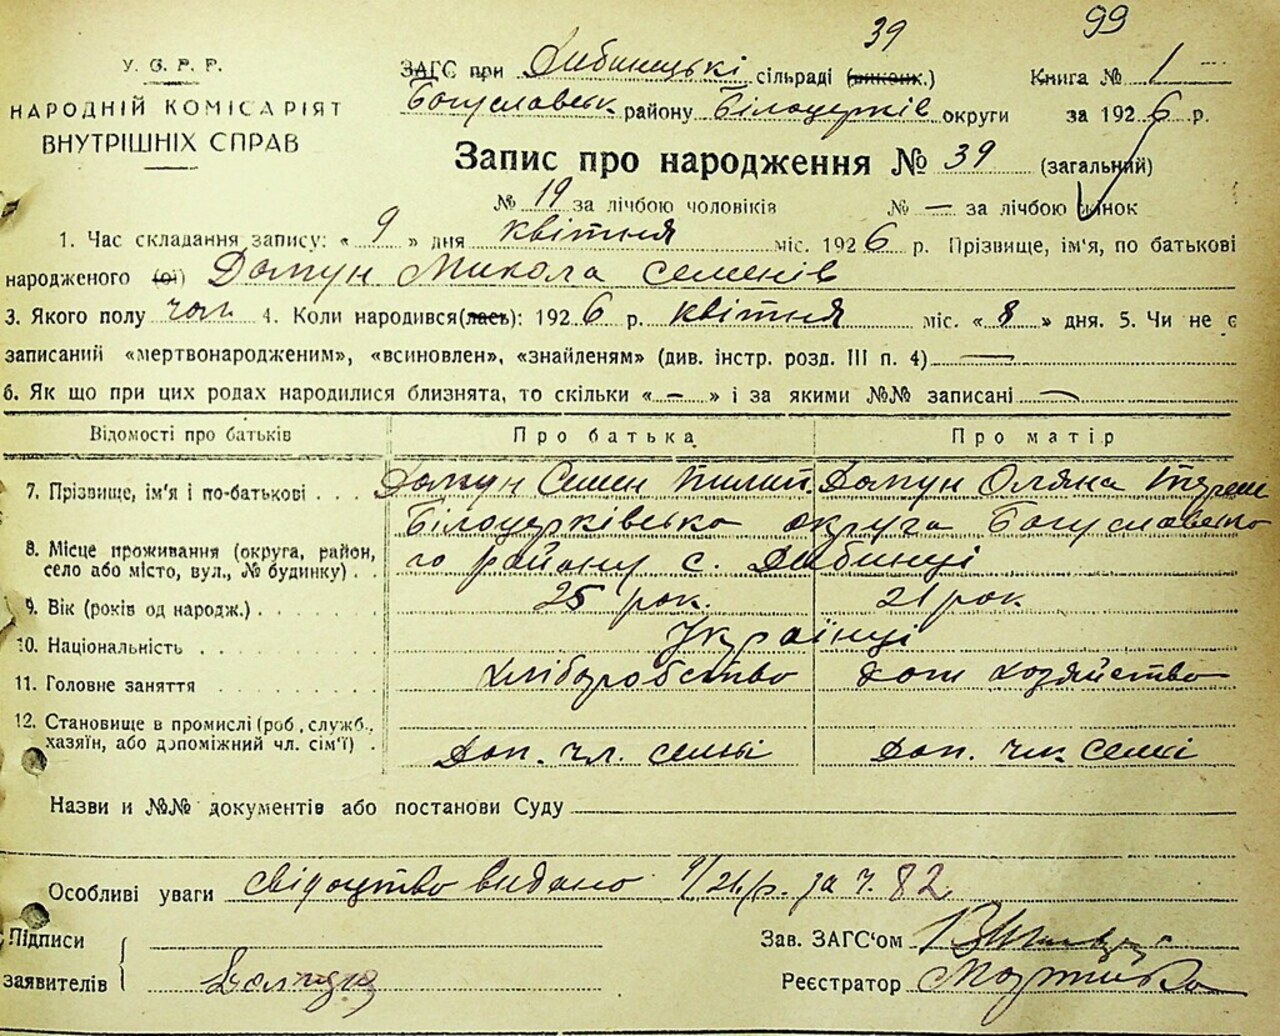 39
99
У. С. Р. Р.
НАРОДНІЙ КОМІСАРІЯТ
ВНУТРІШНІХ СПРАВ
ЗАГС при Дибинецькі сільраді (виконк.) Книга № 1
Богуславськ району Білоцерків округи за 1926 р.
Запис про народження № 39 (загальний)
№ 19 за лічбою чоловіків № — за лічбою жінок
1. Час складання запису: « 9 » дня квітня міс. 1926 р. Прізвище, ім'я, по батькові
народженого (ої) Домун Микола Семенів
3. Якого полу чол. 4. Коли народився(лась): 1926 р. квітня міс. « 8 » дня. 5. Чи не є
записаний «мертвонародженим», «всиновлен», «знайденям» (див. інстр. розд. III п. 4) —
6. Як що при цих родах народилися близнята, то скільки « — » і за якими №№ записані —
Відомості про батьків Про батька Про матір
7. Прізвище, ім'я і по-батькові . . . Домун Семен Пилип. Домун Оляна
Білоцерківська округа Богуславсько
8. Місце проживання (округа, район,
село або місто, вул., № будинку) . . го району с. Дибинці
9. Вік (років од народж.) . . . . . 25 рок. 21 рок
10. Національність . . . . . . . . Українці
11. Головне заняття . . . . . . . хліборобство дом хозяйство
12. Становище в промислі (роб., служб.,
хазяїн, або допоміжний чл. сім'ї) . Доп. чл. семьі Доп. чл. семі
Назви и №№ документів або постанови Суду —
Особливі уваги свідоцтво видано 9/2 за ч. 82
Підписи Зав. ЗАГС'ом
заявителів Реєстратор